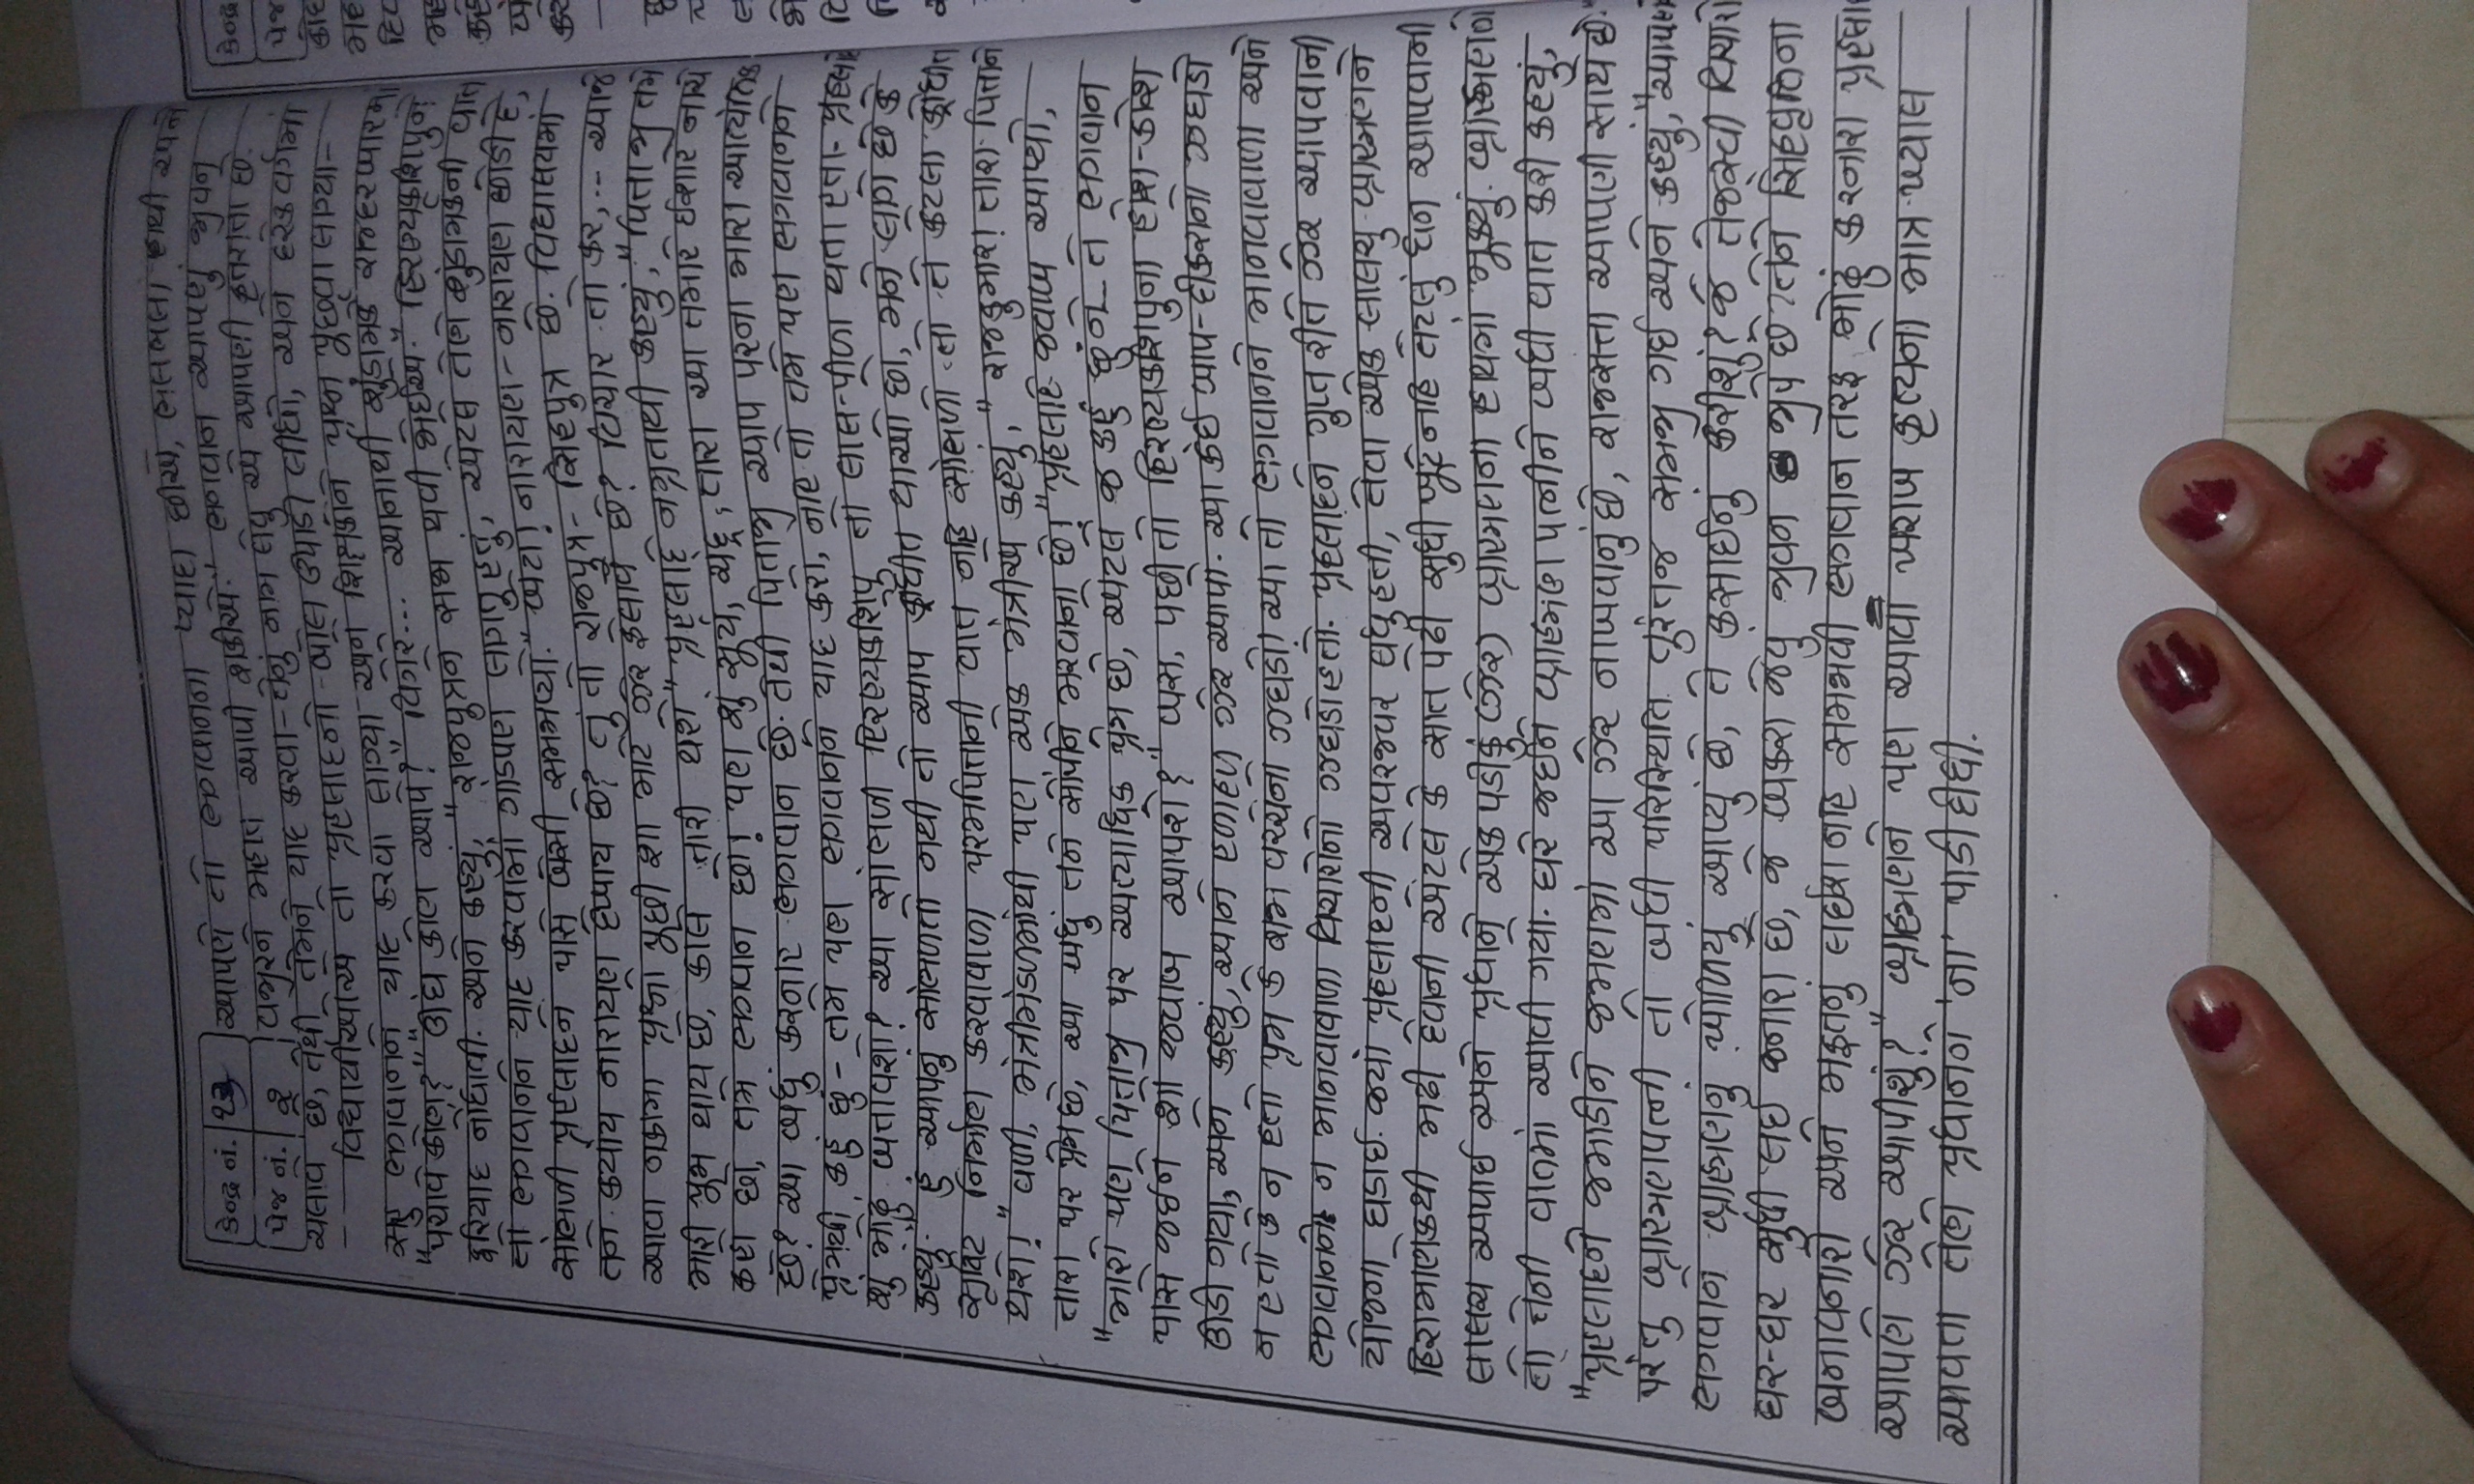 કેન્દ્ર નં. 13 આપણે તો ભગવાનના પ્યાદા છીએ, ભલભલા હાથી અને
પેજ નં. ૨ વજીરને મહાત આપી શકીએ." ભગવાન આપણું જીવન
ચલાવે છે, તેથી તેમને યાદ કરવા-તેનું નામ લેવુ એ આપણી કૃતજ્ઞતા છે.
વિદ્યાર્થીઓએ તો પ્રહલાદનો બોલ ઉપાડી લીધો, અને દરેક વર્ગમાં
સહુ ભગવાનને યાદ કરવા લાગ્યા અને શિક્ષકોને પ્રશ્ન પૂછવા લાગ્યા-
"પચાવે કોણ?" "ઊંઘ કોણ આપે?" વિગેરે... આનાથી શુંડામર્કે રાજદરબારમાં
ફરિયાદ નોંધાવી. અને કહ્યું, "રાજપુત્રને સજા થવી જોઈએ." હિરણ્યકશિપુને
તો ભગવાનને યાદ કરવામાં ગાંડપણ લાગતુ હતું, એટલે તેણે શુંડામર્કની વાત
સાંભળી પ્રહલાદને પાસે બેસી સમજાવ્યો. "બેટા! નારાયણ-નારાયણ છોડી દે,
તને ક્યાંય નારાયણ દેખાય છે? તું તો રાજપુત્ર-સિંહપુત્ર છે. વિદ્યાલયમાં
આવા નકામા પ્રશ્નો પૂછી શા માટે ઝેર ફેલાવે છે? વિચાર તો કર,... આજે
મારી પૂજા થાય છે, કાલે તારી થશે" પ્રહલાદે નમ્રતાથી કહ્યું, "પિતાજી તમે
કહો છો, તમે ભગવાન છો! પણ શું સૂર્ય, ચંદ્ર, તારા આ તમારે ઈશારે નાચે
છે? આ બધું કરનાર ભગવાન છે. તેથી પિતાજી આપ પરના મારા આત્યંતિક
પ્રેમથી કહું છું - તમે પણ ભગવાનને યાદ કરો, નહિ તો તમે પણ ભગવાનને
શું મોઢુ બતાવશો? આ સાંભળી હિરણ્યકશિપુ તો લાલ-પીળા થતા હતા. પ્રહલાદે
કહ્યું. "હું આપનું સાંભળતો નથી તો આપ ક્રોધીત થાઓ છો, મને લાગે છે કે
સૃષ્ટિ નિર્માણ કરવાવાળા પરમપિતાની વાત નહિ સાંભળો તો તે કેટલા ક્રોધીત
થશે!" વળી, મંત્રીમંડળમાંથી પણ એક મંત્રીએ કહ્યું, "રાજકુમાર! તારા પિતાને
તારા પર પ્રેમ છે, આ બધું તને સોંપીને મરવાના છે!" પ્રહલાદે જવાબ આપ્યો,
"મારો પણ પિતાજી પર અત્યાધિક પ્રેમ છે, એટલે જ કહું છુંને તે ભગવાન
પાસે જઈને શો જવાબ આપશે?" બસ, પછી તો હિરણ્યકશિપુના હોશ-કોશ
ઊડી ગયા, અને કહ્યું, આને હળાહળ ઝેર આપો. આ કંઈ બાપ-દીકરાનો ઝઘડો
ન હતો કે ન હતો પ્રેમ કે કામ વચ્ચેનો ઝઘડો! આ તો ભગવાનને માનવાવાળા અને
ભગવાનને ન માનવાવાળા વિચારોનો ઝઘડો હતો. પ્રહલાદને ગુપ્ત રીતે ઝેર આપવાની
યોજના ઘડાઈ. જ્યાં પ્રહલાદની અવરજવર વધુ હતી, તેવા એક લાલચુ બ્રાહ્મણને
હિરામાણેકથી મઢી દેવાની એટલે કે સાત પેઢી સુધી ખૂટે નહિ તેટલું ધન આપવાની
લાલચ અપાઈ અને પ્રધાને એક પડીકું (ઝેર) બ્રાહ્મણના હાથમાં મૂક્યું. બ્રાહ્મણ
તો તેની વાતમાં આવી ગયો. ઘરે જઈને બ્રાહ્મણ પત્નીને બધી વાત કરી કહ્યું,
"પ્રહલાદને જમાડીને જમણમાં આ ઝેર નાખવાનું છે, રાજસત્તા આપણી સાથે છે."
પરંતુ બ્રાહ્મણપત્ની તો બધી પરિસ્થિતિ તુરંતજ સમજી ગઈ અને કહ્યું, "આપણને
ભગવાને બ્રાહ્મણનું ખોળિયું આપ્યું છે, તે કસાઈનું કરીશું? જે તેજસ્વી વિચારો
ઘર-ઘર સુધી લઈ જનારા છે, જે બકરા જેવુ જીવન જીવે છે તેને સિંહવૃત્તિના
બનાવનારો અને મફતનું લઈશ નહિ સમજાવી ભગવાન તરફ મોઢું કરનારા પ્રહલાદ
આપણે ઝેર આપીશું?" બ્રાહ્મણને પણ આવા ખરાબ કૃત્યનો માત્ર ખ્યાલ
આવતા તેણે પ્રધાનને 'ના' પાડી દીધી.